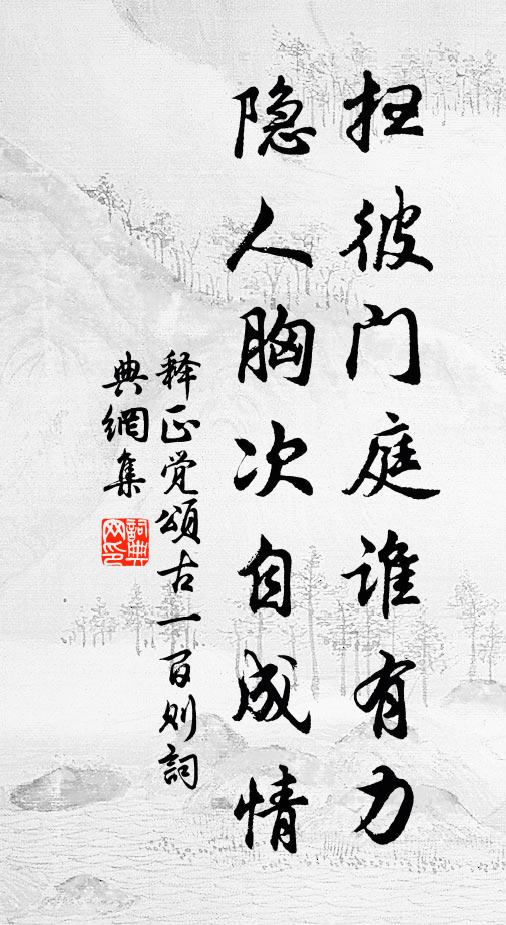 扫彼门庭谁有力
隐人胸次自成情
释正觉颂古一百则词
典網集
詞典网印